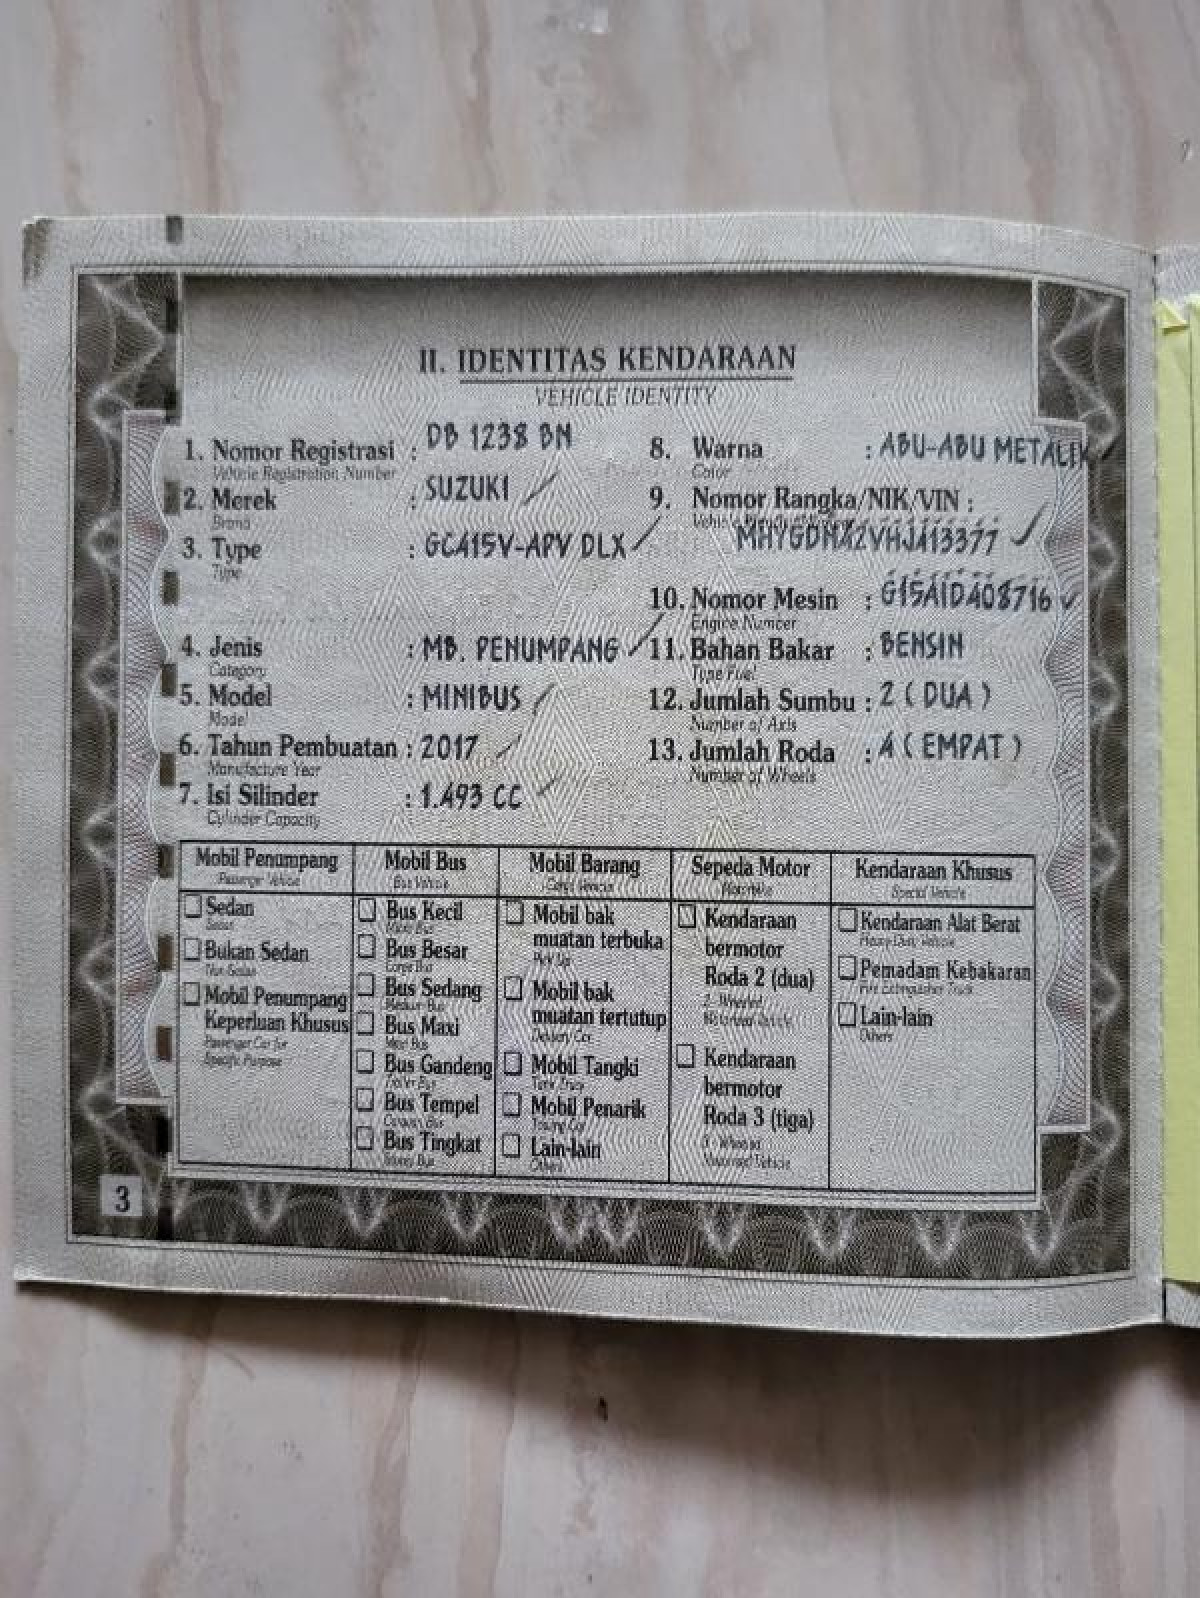 II. IDENTITAS KENDARAAN
VEHICLE IDENTITY
1. Nomor Registrasi : DB 1238 BN
Vehicle Registration Number
2. Merek : SUZUKI
Brand
3. Type : GC415V-APV DLX
Type
4. Jenis : MB. PENUMPANG
Category
5. Model : MINIBUS
Model
6. Tahun Pembuatan : 2017
Manufacture Year
7. Isi Silinder : 1.493 CC
Cylinder Capacity
8. Warna : ABU-ABU METALIK
Color
9. Nomor Rangka/NIK/VIN :
10. Nomor Mesin : G15AID408716
Engine Number
11. Bahan Bakar : BENSIN
Type Fuel
12. Jumlah Sumbu : 2 ( DUA )
Number of Axis
13. Jumlah Roda : 4 ( EMPAT )
Number of Wheels
Mobil Penumpang
Passenger Vehicle
Sedan
Sedan
Bukan Sedan
Mobil Penumpang
Keperluan Khusus
Passenger Car for
Specific Purpose
Mobil Bus
Bus Vehicle
Bus Kecil
Bus Besar
Bus Sedang
Medium Bus
Bus Maxi
Maxi Bus
Bus Gandeng
Bus Tempel
Bus Tingkat
Mobil Barang
Mobil bak
muatan terbuka
Pick Up
Mobil bak
muatan tertutup
Delivery Car
Mobil Tangki
Tank Truck
Mobil Penarik
Towing Car
Lain-lain
Others
Sepeda Motor
Motorbike
Kendaraan
bermotor
Roda 2 (dua)
2 - Wheeled
Motorized Vehicle
Kendaraan
bermotor
Roda 3 (tiga)
3 - Wheeled
Motorized Vehicle
Kendaraan Khusus
Special Vehicle
Kendaraan Alat Berat
Heavy Duty Vehicle
Pemadam Kebakaran
Fire Extinguisher Truck
Lain-lain
Others
3